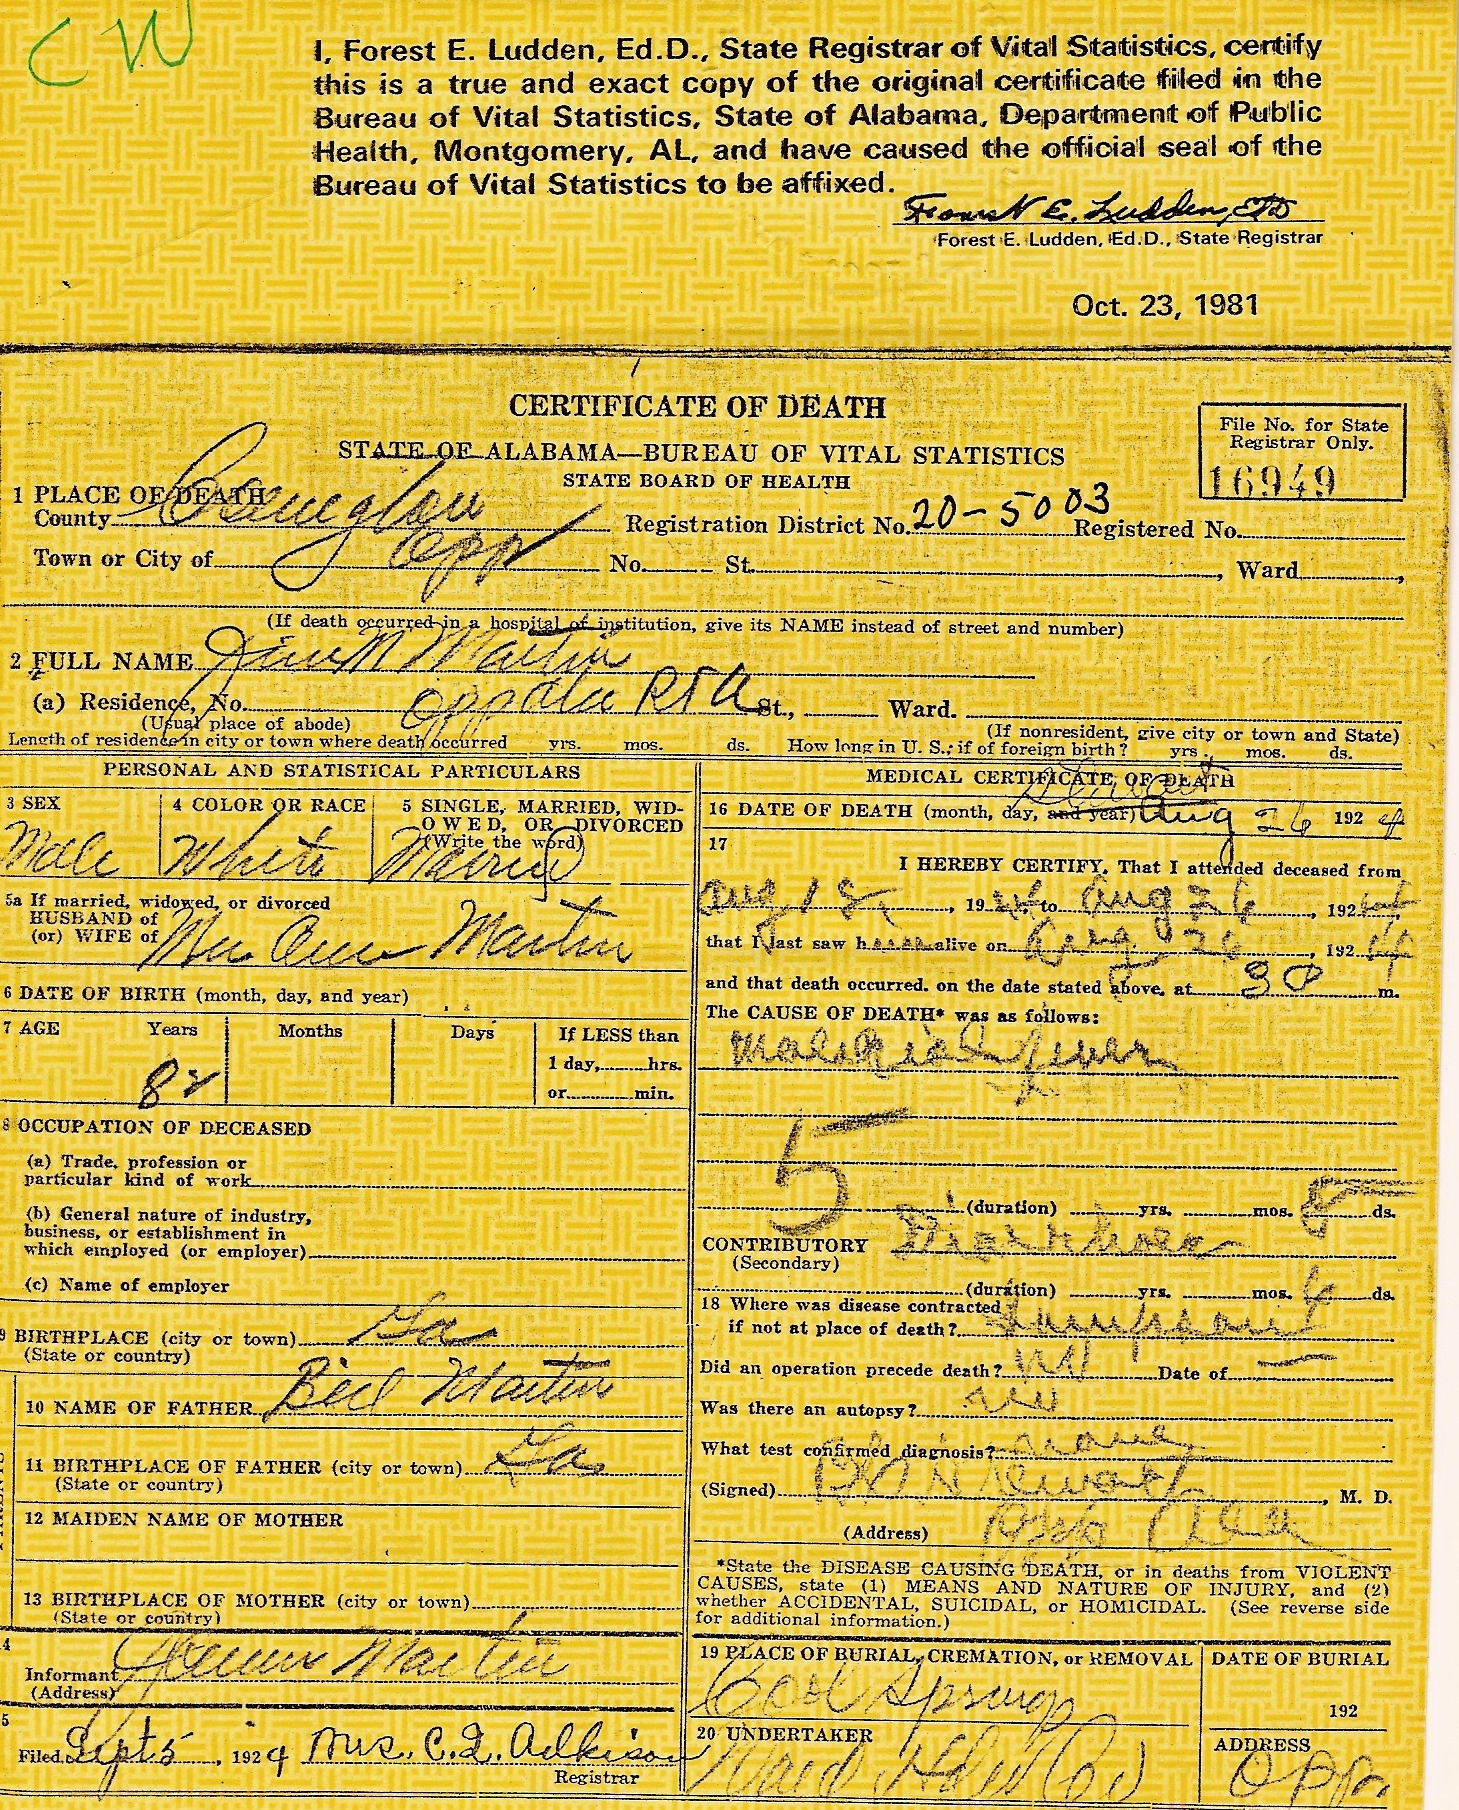 CW
I, Forest E. Ludden, Ed.D., State Registrar of Vital Statistics, certify
this is a true and exact copy of the original certificate filed in the
Bureau of Vital Statistics, State of Alabama, Department of Public
Health, Montgomery, AL, and have caused the official seal of the
Bureau of Vital Statistics to be affixed.
Forest E. Ludden, EdD
Forest E. Ludden, Ed.D., State Registrar
Oct. 23, 1981
CERTIFICATE OF DEATH
STATE OF ALABAMA—BUREAU OF VITAL STATISTICS
STATE BOARD OF HEALTH
File No. for State
Registrar Only.
16949
1 PLACE OF DEATH
County Covington Registration District No. 20-5003 Registered No.
Town or City of Opp No. St. , Ward ,
(If death occurred in a hospital or institution, give its NAME instead of street and number)
2 FULL NAME Jim M Martin
(a) Residence, No. Opp ala Rt A St., Ward.
(Usual place of abode) (If nonresident, give city or town and State)
Length of residence in city or town where death occurred yrs. mos. ds. How long in U. S., if of foreign birth? yrs. mos. ds.
PERSONAL AND STATISTICAL PARTICULARS
3 SEX 4 COLOR OR RACE 5 SINGLE, MARRIED, WID-
OWED, OR DIVORCED
(Write the word)
Male White Married
5a If married, widowed, or divorced
HUSBAND of
(or) WIFE of Martin
6 DATE OF BIRTH (month, day, and year)
7 AGE Years Months Days If LESS than
1 day, hrs.
or min.
82
8 OCCUPATION OF DECEASED
(a) Trade, profession or
particular kind of work
(b) General nature of industry,
business, or establishment in
which employed (or employer)
(c) Name of employer
9 BIRTHPLACE (city or town) Ga
(State or country)
10 NAME OF FATHER Bill Martin
11 BIRTHPLACE OF FATHER (city or town) Ga
(State or country)
12 MAIDEN NAME OF MOTHER
13 BIRTHPLACE OF MOTHER (city or town)
(State or country)
14
Informant Martin
(Address)
15
Filed Sept 5, 1924 Mrs. C.Q. Adkison
Registrar
MEDICAL CERTIFICATE OF DEATH
16 DATE OF DEATH (month, day, and year) Aug 26 1924
17
I HEREBY CERTIFY, That I attended deceased from
Aug 18, 1924 to Aug 26, 1924
that I last saw h alive on Aug 26, 1924
and that death occurred, on the date stated above, at 30 m.
The CAUSE OF DEATH* was as follows:
Malarial fever
5
(duration) yrs. mos. 5 ds.
CONTRIBUTORY Diarrhoea
(Secondary)
(duration) yrs. mos. ds.
18 Where was disease contracted
if not at place of death?
Did an operation precede death? no Date of —
Was there an autopsy? no
What test confirmed diagnosis? none
(Signed) , M. D.
(Address) Opp Ala
*State the DISEASE CAUSING DEATH, or in deaths from VIOLENT
CAUSES, state (1) MEANS AND NATURE OF INJURY, and (2)
whether ACCIDENTAL, SUICIDAL, or HOMICIDAL. (See reverse side
for additional information.)
19 PLACE OF BURIAL, CREMATION, or REMOVAL DATE OF BURIAL
Cool Springs 192
20 UNDERTAKER ADDRESS
Opp